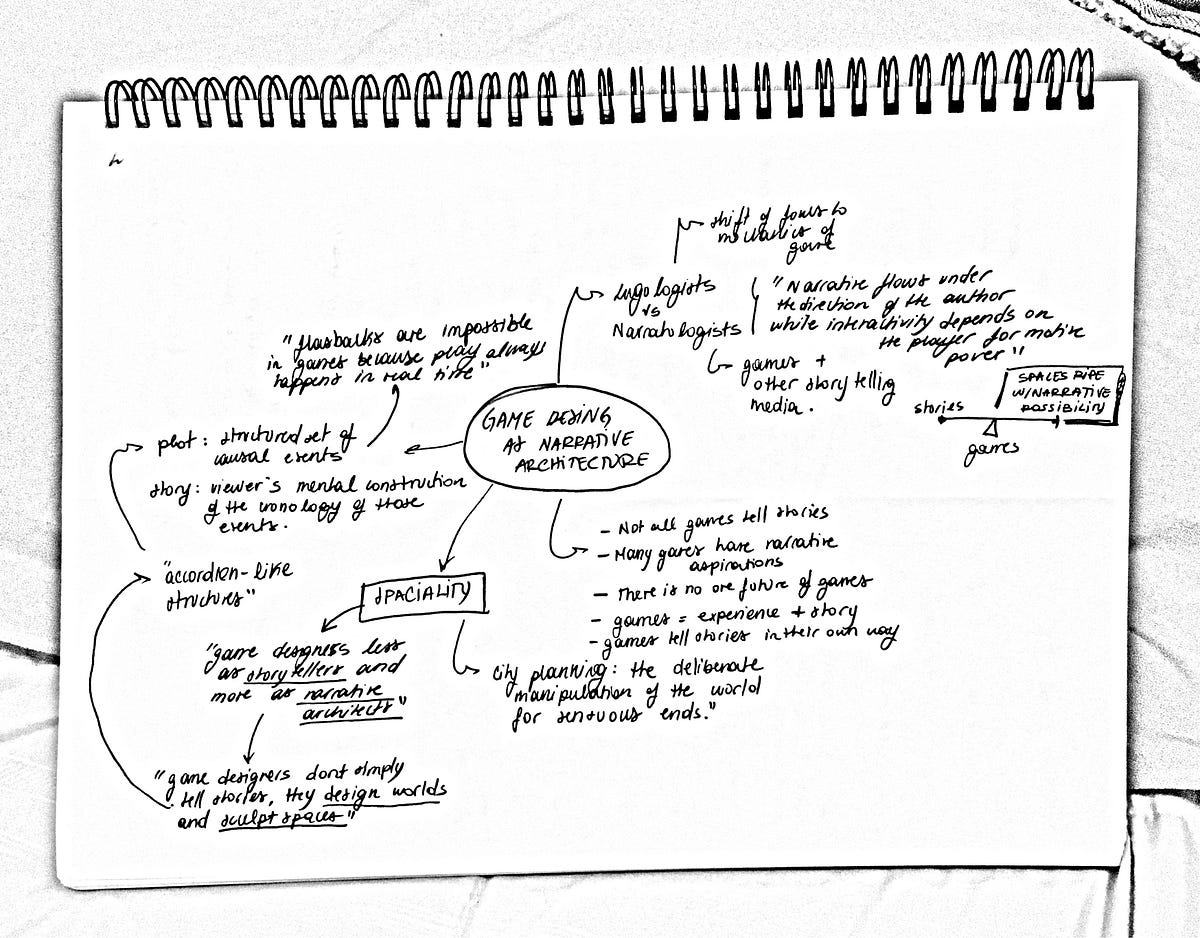 shift of focus to
mechanics of
game
Ludologists
vs
Narratologists
"Narrative flows under
the direction of the author
while interactivity depends on
the player for motive
power"
games +
other story telling
media.
stories
games
SPACES RIPE
W/NARRATIVE
POSSIBILITY
"flasbacks are impossible
in games because play always
happens in real time"
GAME DESING
AS NARRATIVE
ARCHITECTURE
plot: structured set of
causal events
story: viewer's mental construction
of the cronology of those
events.
"accordion-like
structures"
SPACIALITY
"game designers less
as storytellers and
more as narrative
architects"
"game designers dont simply
tell stories, they design worlds
and sculpt spaces"
- Not all games tell stories
- Many games have narrative
aspirations
- There is no one future of games
- games = experience + story
- games tell stories in their own way
city planning: the deliberate
manipulation of the world
for sensuous ends."